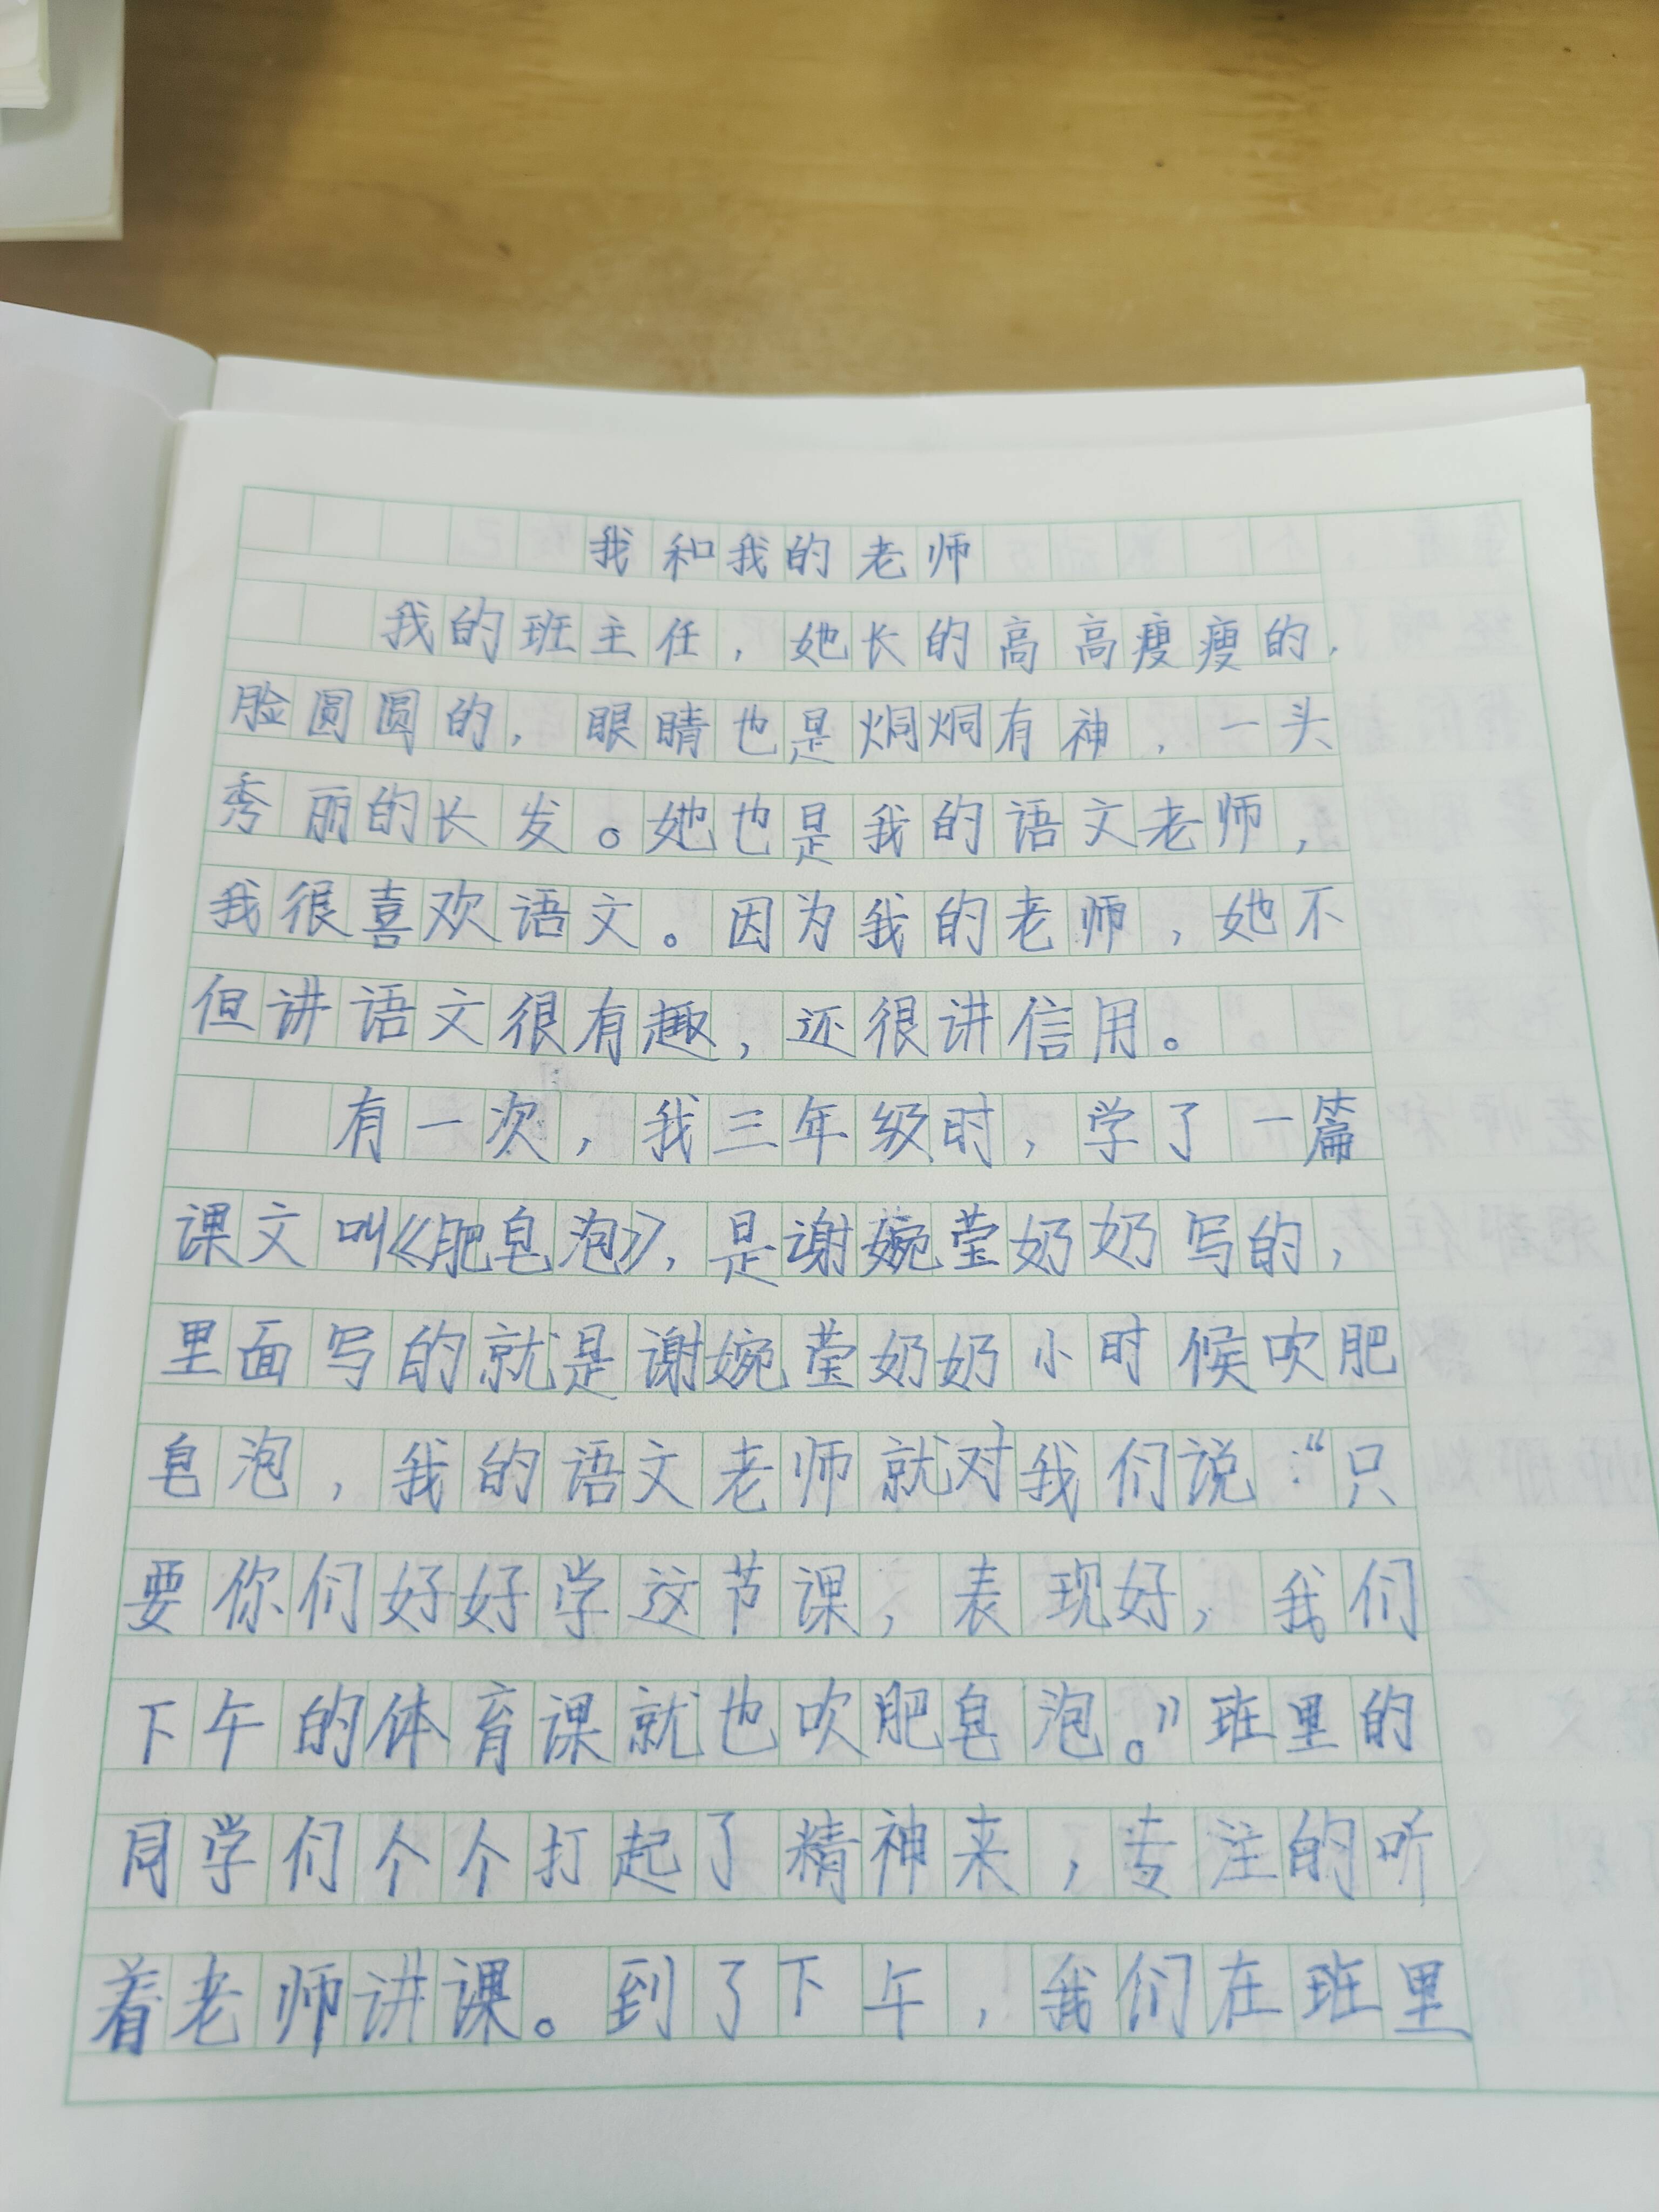 我和我的老师
我的班主任，她长的高高瘦瘦的，
脸圆圆的，眼睛也是炯炯有神，一头
秀丽的长发。她也是我的语文老师，
我很喜欢语文。因为我的老师，她不
但讲语文很有趣，还很讲信用。
有一次，我三年级时，学了一篇
课文叫《肥皂泡》，是谢婉莹奶奶写的，
里面写的就是谢婉莹奶奶小时候吹肥
皂泡，我的语文老师就对我们说：“只
要你们好好学这节课，表现好，我们
下午的体育课就也吹肥皂泡。”班里的
同学们个个打起了精神来，专注的听
着老师讲课。到了下午，我们在班里